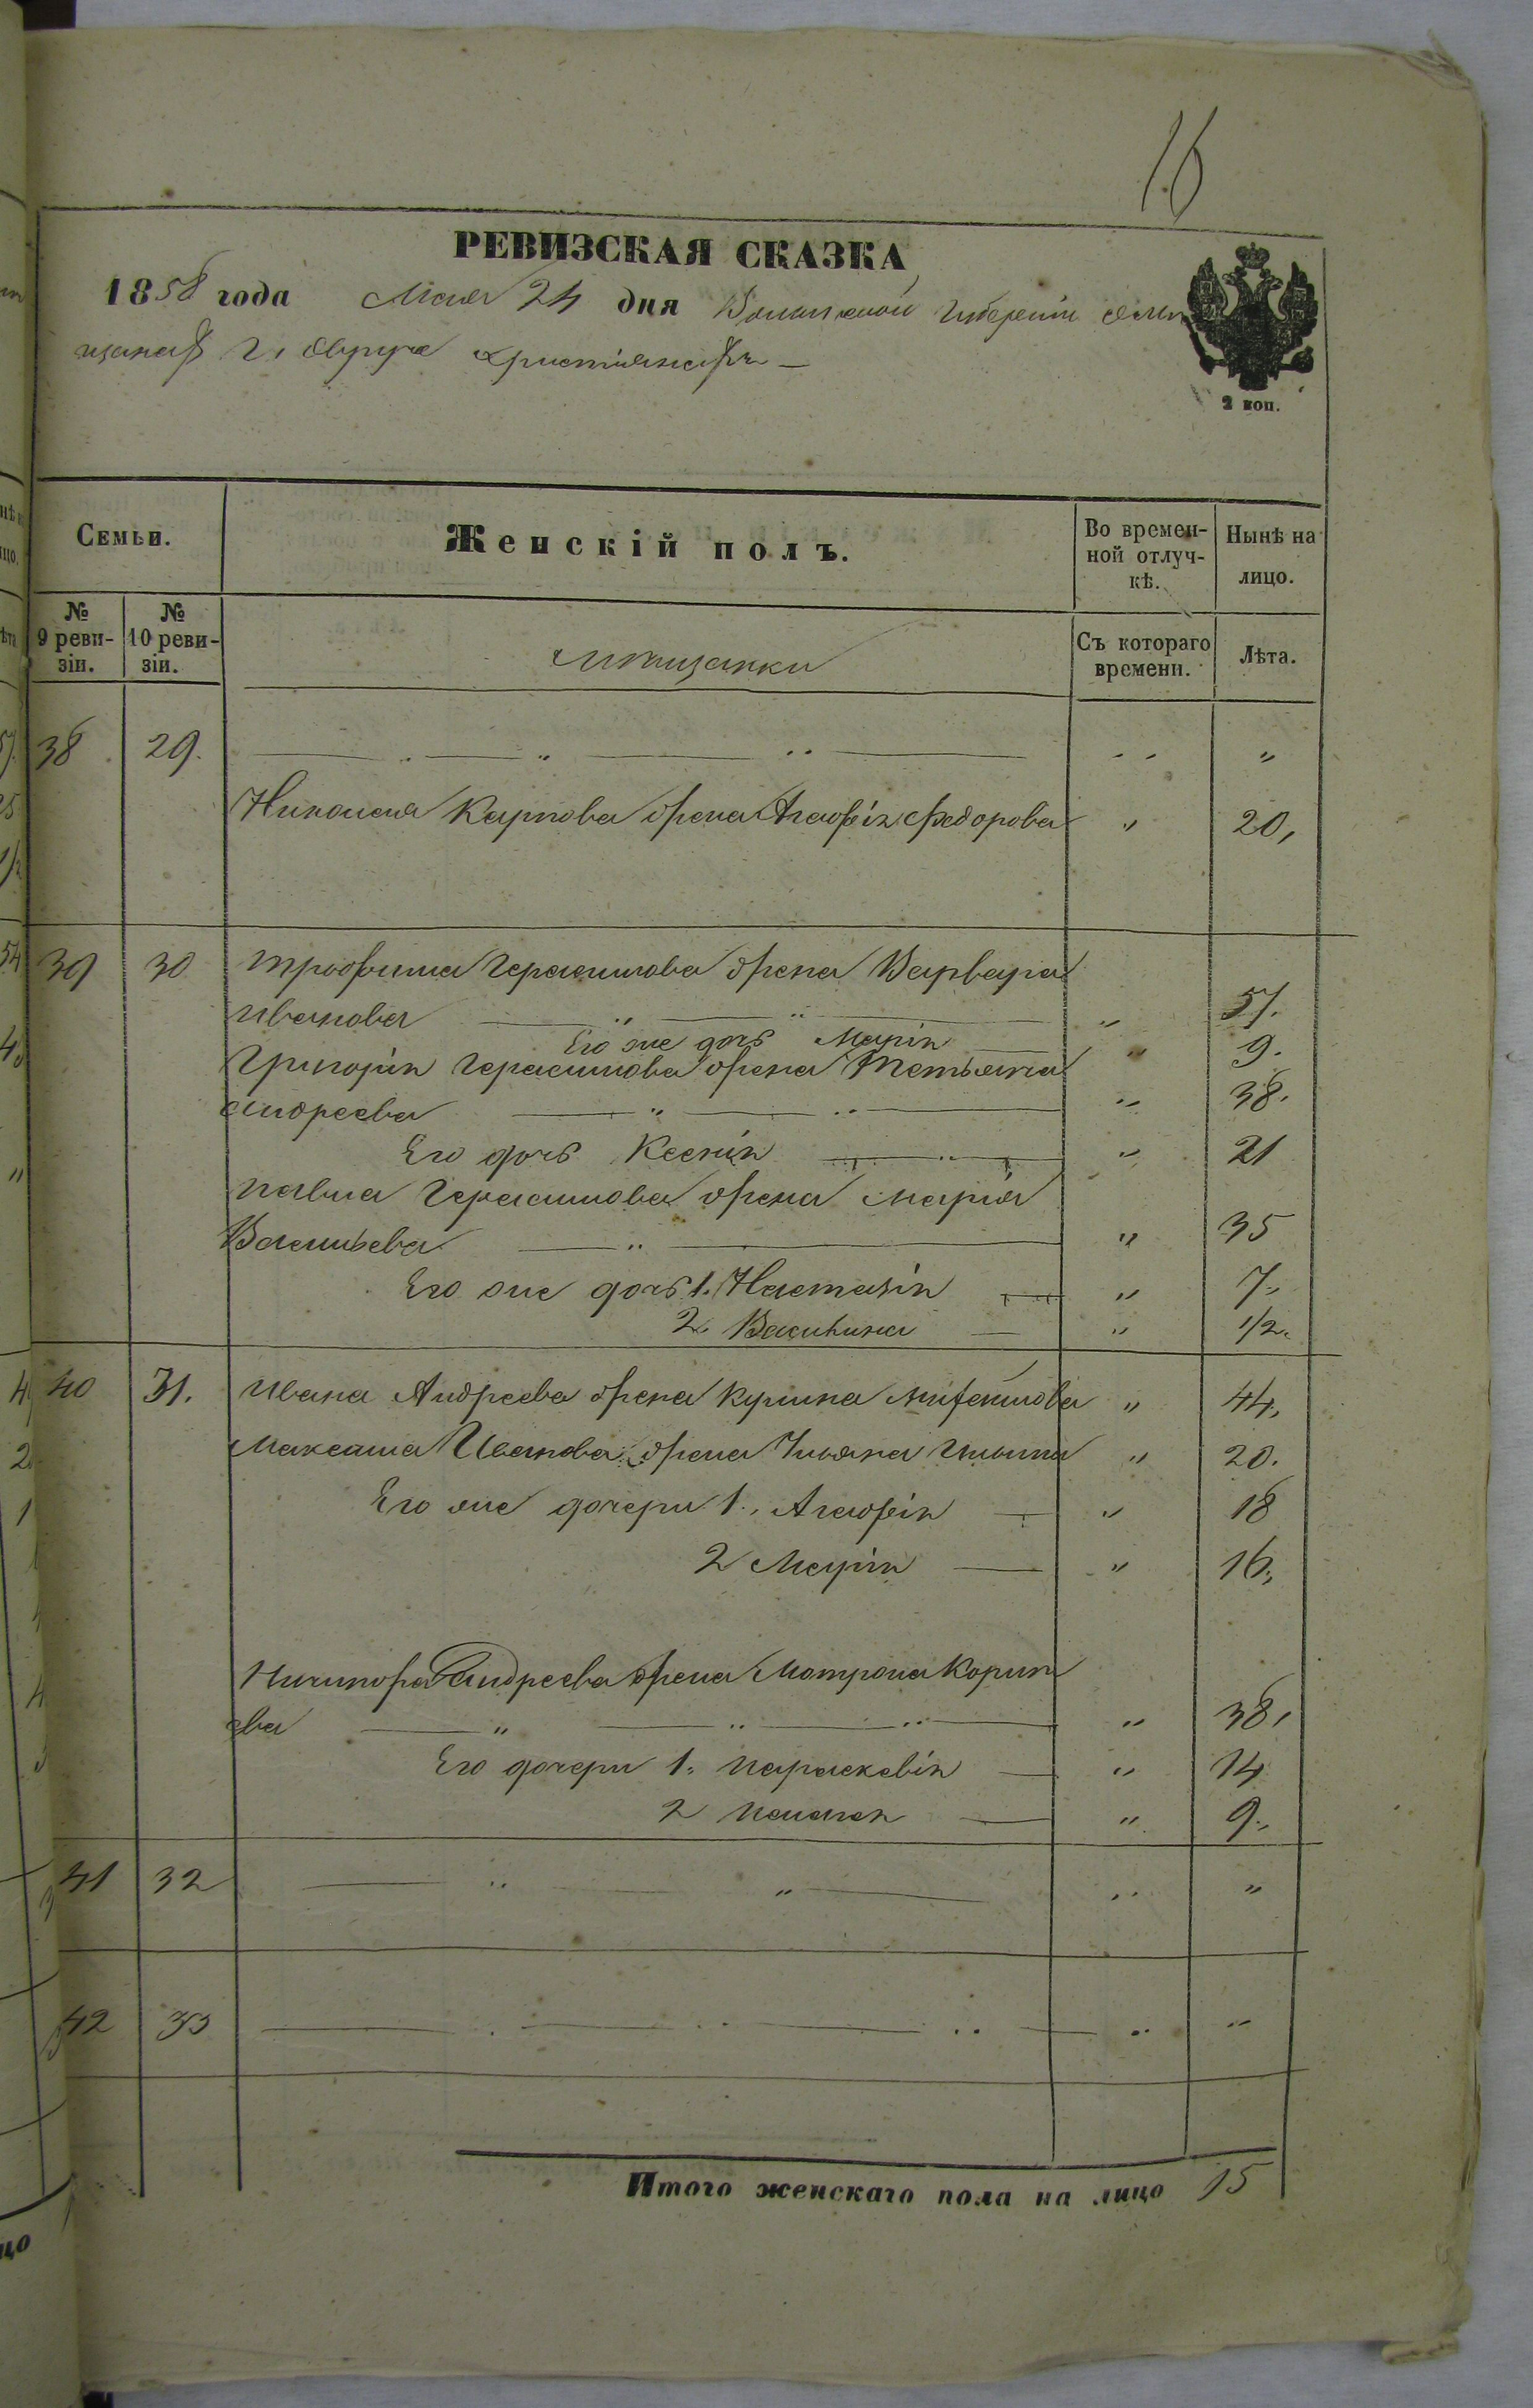 16
РЕВИЗСКАЯ СКАЗКА
1858 года Мая 24 дня Волынской Губерніи о мѣ
щанахъ г. Овруча христіанахъ —
2 коп.
Семьи.
Женскій полъ.
Во времен-
ной отлуч-
кѣ.
Нынѣ на
лицо.
№
9 реви-
зіи.
№
10 реви-
зіи.
мѣщанки
Съ котораго
времени.
Лѣта.
38 29. — " — " — " "
Николая Карпова жена Агафія Федорова " 20,
39 30 Трофима Герасимова жена Варвара
Иванова — " — " — " 57.
Его же дочь Марія — " 9.
Григорія Герасимова жена Татьяна
Андреева — " — " — " 38.
Его дочь Ксенія — " — " 21
Павла Герасимова жена Марія
Васильева — " — " 35
Его же дочь 1. Настазія — " 7.
2. Василина — " 1/2.
40 31. Ивана Андреева жена Кулина " 44,
Максима Иванова жена Ульяна Ильина " 20.
Его же дочери 1., Агафія — " 18
2 Марія — " 16.
Ничипора Андреева жена Матрона Корнѣ
ева — " — " — " — " 38,
Его дочери 1. Параскевія — " 14
2 Пелагея — " 9.
41 32 — " — " — " "
42 33 — . — " — " — " "
Итого женскаго пола на лицо 15